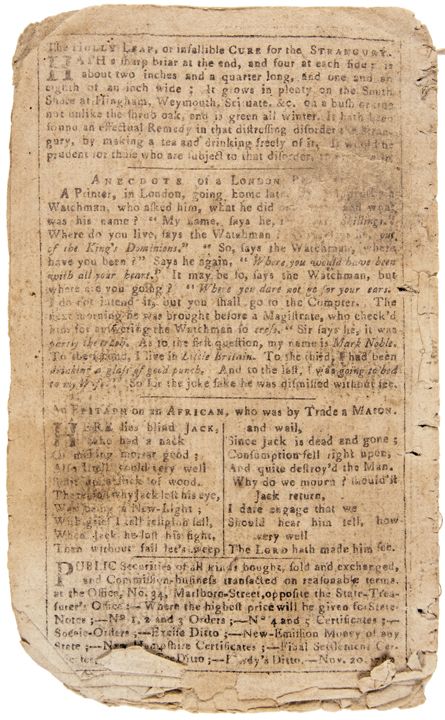 The HOLLY LEAF, or infallible CURE for the STRANGURY.
HATH a sharp briar at the end, and four at each side; is
about two inches and a quarter long, and one and an
eighth of an inch wide; It grows in plenty on the South
Shore at Hingham, Weymouth, Scituate, &c. on a bush or tree
not unlike the shrub oak, and is green all winter. It hath been
found an effectual Remedy in that distressing disorder the Stran-
gury, by making a tea and drinking freely of it. It would be
prudent for those who are subject to that disorder,
ANECDOTE of a LONDON
A Printer, in London, going home late,
Watchman, who asked him, what he did
was his name? "My name, says he,
Where do you live, says the Watchman?
of the King's Dominions." "So, says the Watchman, where
have you been?" Says he again, "Where you would have been
with all your heart." It may be so, says the Watchman, but
where are you going? "Where you dare not go for your ears.
I do not intend it, but you shall go to the Compter. The
next morning he was brought before a Magistrate, who check'd
him for answering the Watchman so cross. "Sir says he, it was
partly the truth. As to the first question, my name is Mark Noble.
To the second, I live in Little Britain. To the third, I had been
drinking a glass of good punch. And to the last, I was going to bed
to my Wife." So for the joke sake he was dismissed without fee.
An EPITAPH on an AFRICAN, who was by Trade a MASON.
HERE lies blind JACK,
who had a nack
Of making mortar good;
Also he could very well
a stack of wood.
The reason why Jack lost his eye,
Was being a New-Light;
With grief I tell religion fell,
When Jack he lost his sight,
Then without fail let's weep
and wail,
Since Jack is dead and gone;
Consumption fell right upon,
And quite destroy'd the Man.
Why do we mourn? should it
Jack return,
I dare engage that we
Should hear him tell, how
very well
The LORD hath made him see.
PUBLIC Securities of all kinds bought, sold and exchanged,
and Commission-business transacted on reasonable terms.
at the Office, No. 34, Marlboro-Street, opposite the State-Trea-
surer's Office:—Where the highest price will be given for State-
Notes;—No 1, 2 and 3 Orders;—No 4 and 5 Certificates;—
Specie-Orders;—Excise Ditto;—New-Emission Money of any
State;—New Hampshire Certificates;—Final Settlement Cer-
Ditto;—Ditto.—Nov. 20,